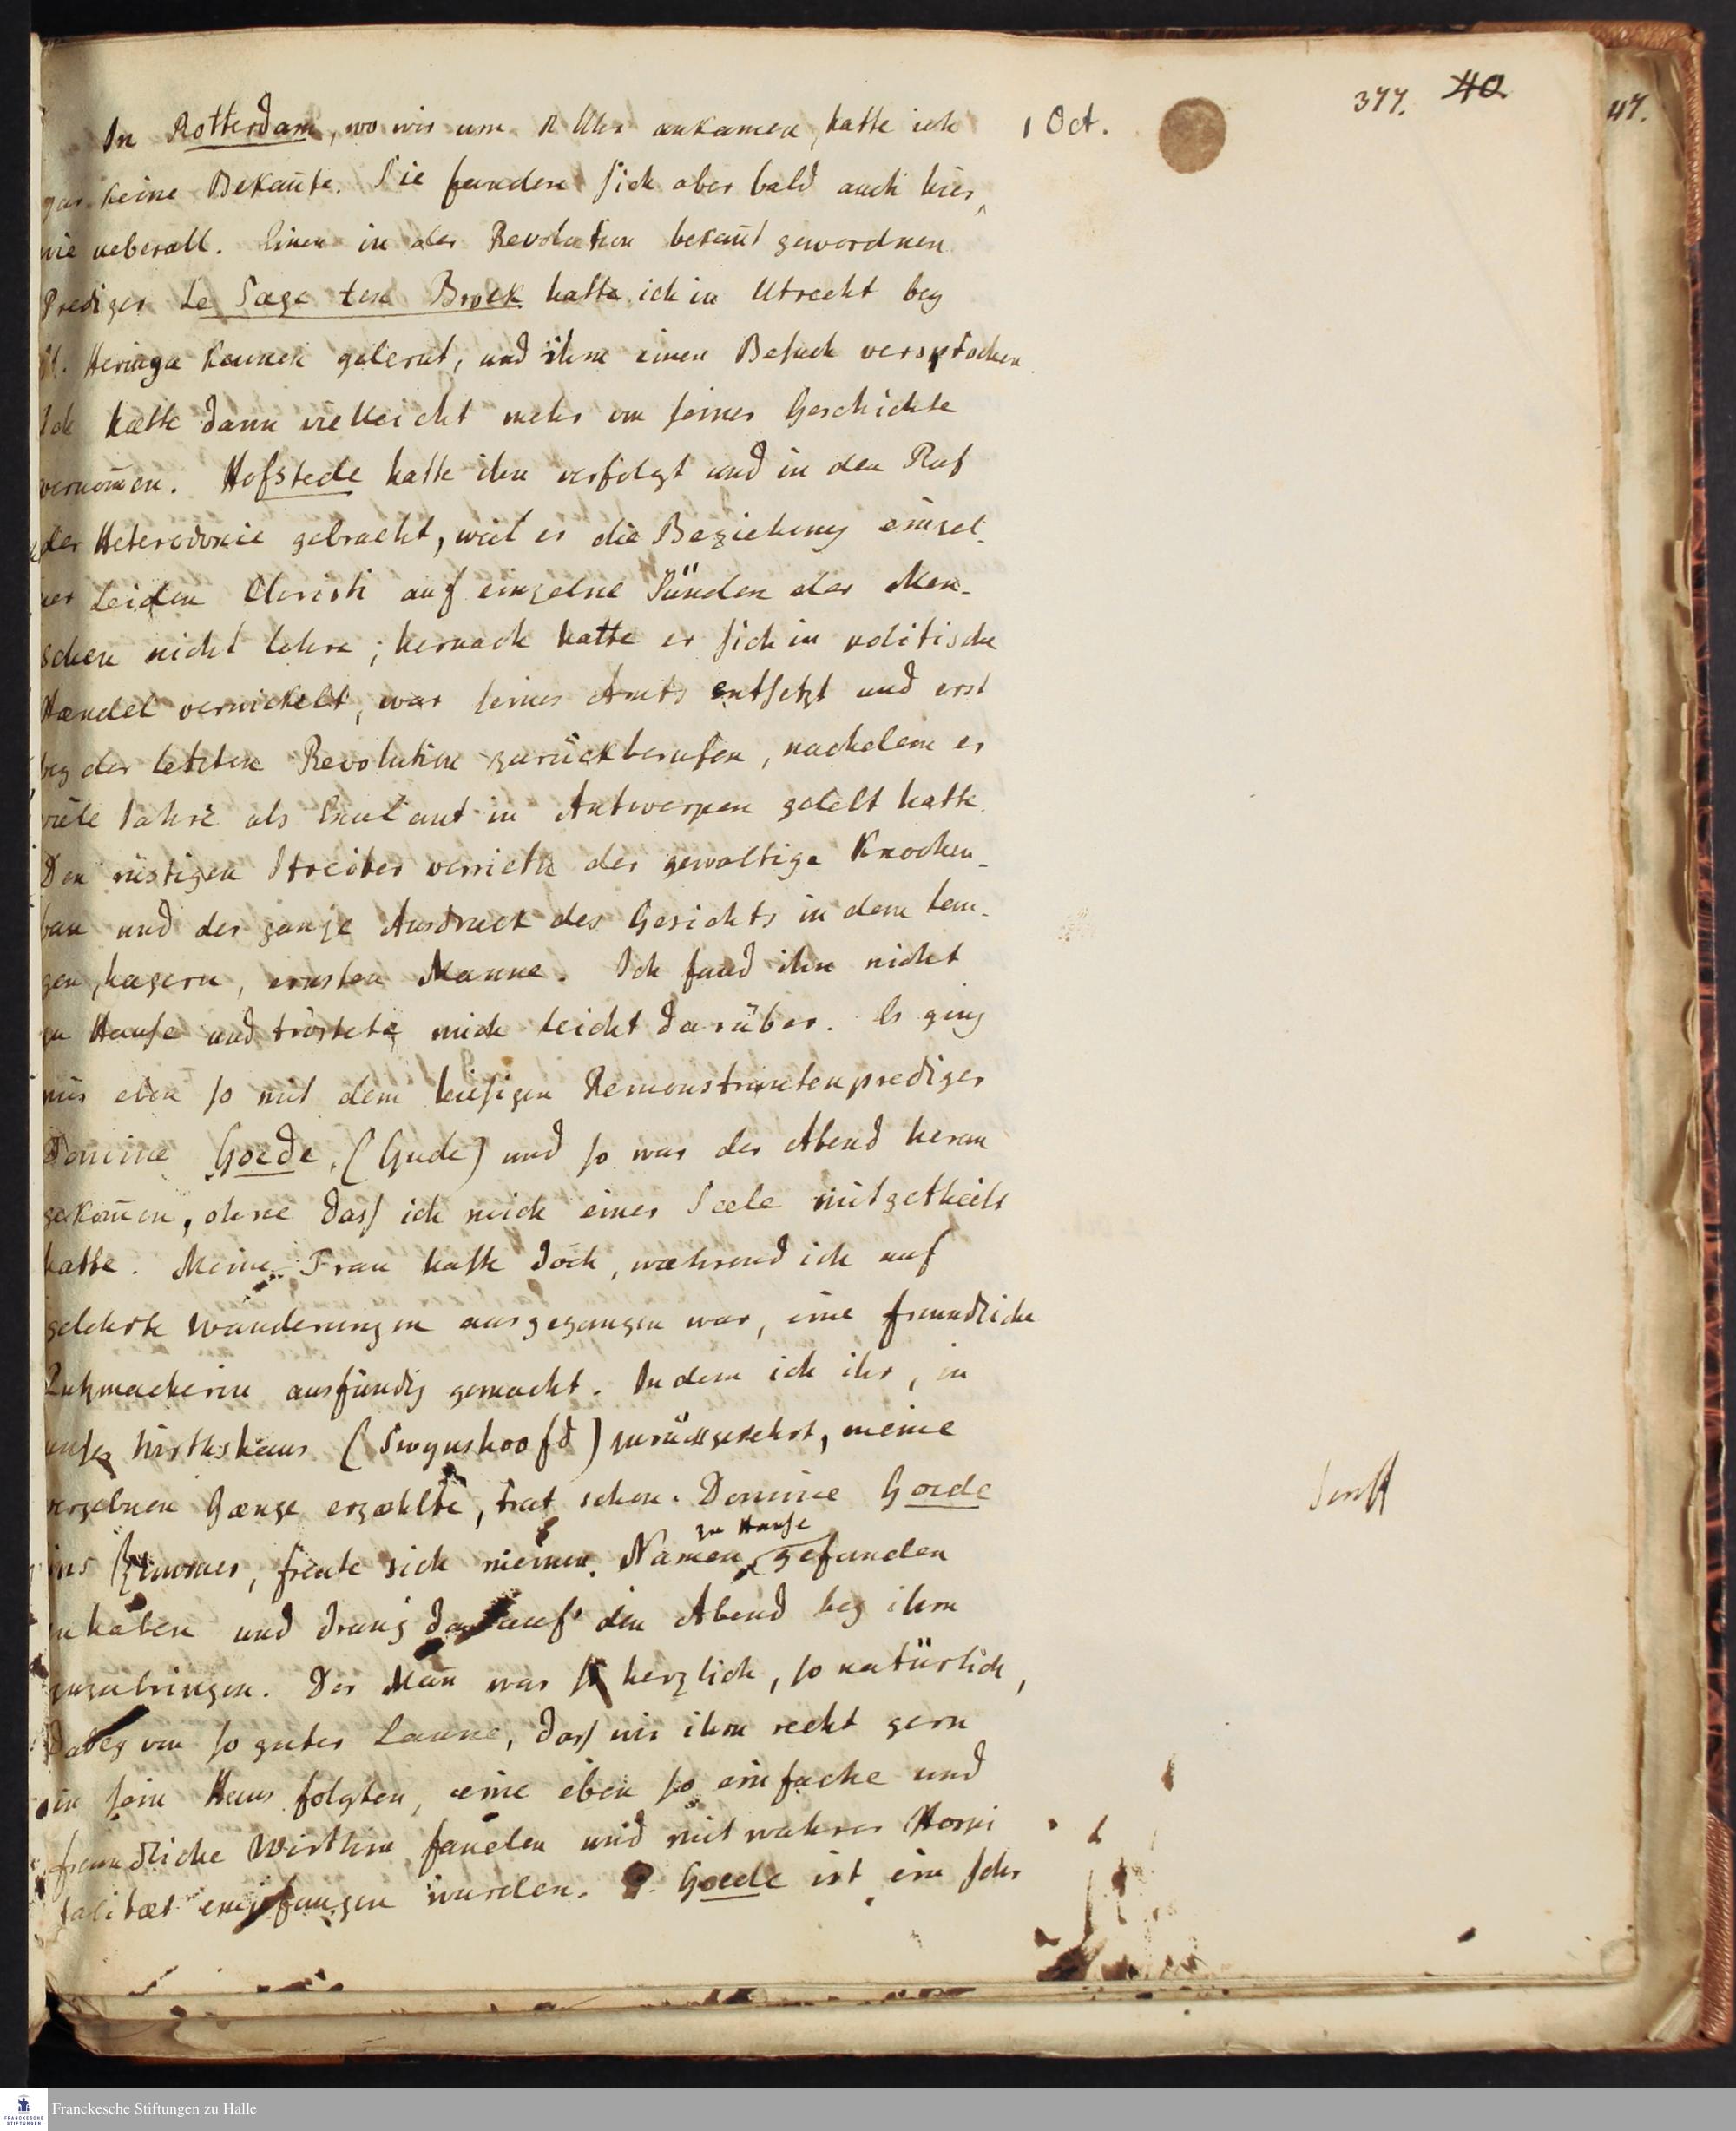 377. 40
47.
1 Oct.
In Rotterdam, wo wir um 12 Uhr ankamen, hatte ich
gar keine Bekañte. Sie fanden sich aber bald auch hier,
wie ueberall. Einen in der Revolution bekañt gewordnen
Prediger Le Sage ten Broek hatte ich in Utrecht bey
H. Heringa kennen gelernt, und ihm einen Besuch versprochen
Ich hætte dann vielleicht mehr von seiner Geschichte
vernom̄en. Hofstede hatte ihn verfolgt und in den Ruf
der Heterodoxie gebracht, weil er die Beziehung einzel-
ner Leiden Christi auf einzelne Sünden der Men-
schen nicht lehre; hernach hatte er sich in politische
Hændel verwickelt, war seines Amts entsetzt und erst
bey der letzten Revolution zurückberufen, nachdem er
viele Jahre als Exulant in Antwerpen gelebt hatte.
Den rüstigen Streiter verrieth der gewaltige Knochen-
bau und der ganze Ausdruck des Gesichts in dem lan-
gen, hagern, ernsten Manne. Ich fand ihn nicht
zu Hause und tröstete mich leicht darüber. Es ging
mir eben so mit dem hiesigen Remonstrantenprediger
Domine Goede, (Gude) und so war der Abend heran
gekom̄en, ohne dass ich mich einer Seele mitgetheilt
hatte. Meine Frau hatte doch, wæhrend ich auf
gelehrte Wanderungen ausgegangen war, eine freundliche
Putzmacherin ausfündig gemacht. Indem ich ihr, in
unser Wirthshaus (Swynshoofd) zurückgekehrt, meine
vergebnen Gænge erzæhlte, trat schon Domine Goede
ins Zimmer, freute sich meinen Namen zu Hause gefunden
zu haben und drang darauf den Abend bey ihm
zuzubringen. Der Mañ war so herzlich, so natürlich,
dabey von so guter Laune, dass wir ihm recht gern
in sein Haus folgten, eine eben so einfache und
freundliche Wirthin fanden und mit wahrer Hospi
talitæt empfangen wurden. D. Goede ist ein sehr
Franckesche Stiftungen zu Halle